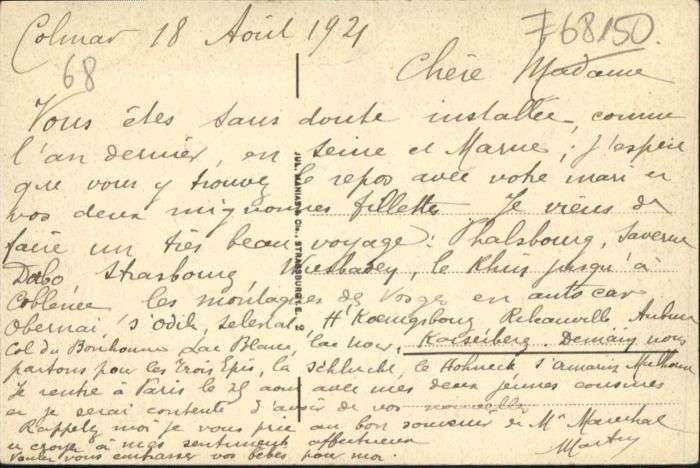 Colmar 18 Août 1921
F68150
68
Chère Madame
Vous êtes sans doute installée, comme
l'an dernier, en Seine et Marne; j'espère
que vous y trouvez le repos avec votre mari et
vos deux mignonnes fillettes. Je viens de
faire un très beau voyage: Phalsbourg, Saverne
Dabo Strasbourg Wiesbaden, le Rhin jusqu'à
Coblence les montagnes des Vosges en auto car
Obernai, St Odile, Selestat, Ht Koenigsbourg Ribeauvillé
Col du Bonhomme Lac Blanc, lac noir, Kaiserberg. Demain nous
partons pour les Trois Epis, la Schlucht, le Hohneck St Amarin Mulhouse
Je rentre à Paris le 25 août avec mes deux jeunes cousines
et je serai contente d'avoir de vos nouvelles
Rappelez moi je vous prie au bon souvenir de Mr Marechal
et croyez à mes sentiments affectueux
Voulez vous embrasser vos bébés pour moi.
JUL. MANIAS & Cie., STRASBOURG